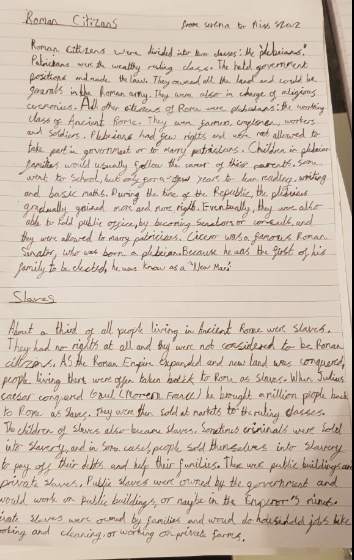 Roman Citizans
from Serena for Miss
Roman citizens were divided into two classes: the "plebeians".
Patricians were the wealthy ruling class. The held government
positions and made the law. They owned all the land and could be
generals in the Roman army. They were also in charge of religious
ceremonies. All other citizens of Rome were plebeians: the working
class of Ancient Rome. They were farmers, workers
and soldiers. Plebeians had few rights and were not allowed to
take part in government or to marry patricians. Children in plebeian
families would usually follow the career of their parents. Some
went to School, but only for a few years to learn reading, writing
and basic maths. During the time of the Republic, the plebeians
gradually gained more and more rights. Eventually, they were also
able to hold public office, by becoming senators or consuls, and
they were allowed to marry patricians. Cicero was a famous Roman
Senator, who was born a plebeian. Because he was the first of his
family to be elected, he was known as a "New Man"
Slaves
About a third of all people living in Ancient Rome were slaves.
They had no rights at all and they were not considered to be Roman
citizens. As the Roman Empire expanded and new land was conquered,
people living there were often taken back to Rome as slaves. When Julius
caesar conquered Gaul (Modern France) he brought a million people back
to Rome as slaves. They were then sold at markets to the ruling classes.
The children of slaves also became slaves. Sometimes criminals were sold
into slavery, and in some cases, people sold themselves into slavery
to pay off their debts and help their families. There were public buildings and
private slaves. Public slaves were owned by the government and
would work on public buildings, or maybe in the Emperor's mines.
private slaves were owned by families and would do household jobs like
cooking and cleaning, or working on private farms.